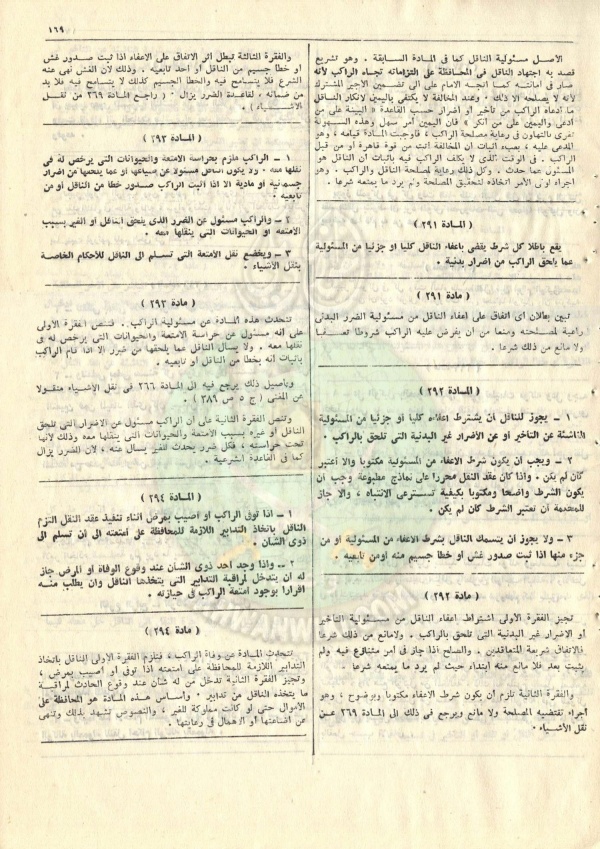 ١٦٩
الاصل مسئولية الناقل كما فى المادة السابقة . وهو تشريع
قصد به اجتهاد الناقل فى المحافظة على التزاماته تجاه الراكب لأنه
صار فى أمانته كما اتجه الامام على الى تضمين الاجير المشترك
لأنه لا يصلحه الا ذاك . وعند المخالفة لا يكتفى باليمين لانكار الناقل
ما ادعاه الراكب من تأخير او اضرار حسب القاعدة « البينة على من
ادعى واليمين على من أنكر » فان اليمين أمر سهل وهذه السهولة
تغرى بالتهاون فى رعاية مصلحة الراكب ، فأوجبت المادة قيامه ، وهو
المدعى عليه ، بعبء اثبات ان المخالفة أتت من قوة قاهرة أو من قبل
الراكب . فى الوقت الذى لا يكلف الراكب فيه باثبات ان الناقل هو
المسئول عما حدث . وكل ذلك رعاية لمصلحة الناقل والراكب . وهو
اجراء لولى الأمر اتخاذه لتحقيق المصلحة ولم يرد ما يمنعه شرعا .
( المادة ٢٩١ )
يقع باطلا كل شرط يقضى باعفاء الناقل كليا أو جزئيا من مسئولية
عما يلحق الراكب من أضرار بدنية .
( مادة ٢٩١ )
تبين بطلان اى اتفاق على إعفاء الناقل من مسئولية الضرر البدنى
راعية لمصلحته ومنعا من أن يفرض عليه الراكب شروطا تعسفيا
ولا مانع من ذلك شرعا .
( المادة ٢٩٢ )
١ – يجوز للناقل أن يشترط إعفاءه كليا أو جزئيا من المسئولية
الناشئة عن التأخير أو عن الأضرار غير البدنية التى تلحق بالراكب .
٢ – ويجب أن يكون شرط الاعفاء من المسئولية مكتوبا والا أعتبر
كأن لم يكن . واذا كان عقد النقل محررا على نماذج مطبوعة وجب أن
يكون الشرط واضحا ومكتوبا بكيفية تسترعى الانتباه ، والا جاز
للمحكمة أن تعتبر الشرط كأن لم يكن .
٣ – ولا يجوز أن يتمسك الناقل بشرط الاعفاء من المسئولية أو من
جزء منها اذا ثبت صدور غش أو خطأ جسيم منه أو من تابعيه .
( مادة ٢٩٢ )
تجيز الفقرة الأولى اشتراط اعفاء الناقل من مسئولية التأخير
او الاضرار غير البدنية التى تلحق بالراكب . ولا مانع من ذلك شرعا
فالاتفاق شريعة المتعاقدين . والصلح اذا جاز فى امر متنازع فيه ولم
يثبت بعد فلا مانع منه ابتداء حيث لم يرد ما يمنعه شرعا .
والفقرة الثانية تلزم أن يكون شرط الاعفاء مكتوبا وبوضوح ، وهو
أجراء تقتضيه المصلحة ولا مانع ويرجع فى ذلك الى المادة ٢٦٩ عن
نقل الأشياء .
والفقرة الثالثة تبطل أثر الاتفاق على الاعفاء اذا ثبت صدور غش
أو خطأ جسيم من الناقل أو أحد تابعيه . وذلك لأن الغش نهى عنه
الشرع فلا يتسامح فيه والخطأ الجسيم كذلك لا يتسامح فيه فلا بد
من ضمانه ، لقاعدة الضرر يزال . ( راجع المادة ٢٦٩ من نقل
الأشياء ) .
( المادة ٢٩٣ )
١ – الراكب ملزم بحراسة الامتعة والحيوانات التى يرخص له فى
نقلها معه . ولا يكون الناقل مسئولا عن ضياعها أو عما يلحقها من اضرار
جسمانية أو مادية الا اذا أثبت الراكب صدور خطأ من الناقل أو من
تابعيه .
٢ – والراكب مسئول عن الضرر الذى يلحق الناقل أو الغير بسبب
الامتعة أو الحيوانات التى ينقلها معه .
٣ – ويخضع نقل الأمتعة التى تسلم الى الناقل للأحكام الخاصة
بنقل الأشياء .
( مادة ٢٩٣ )
تتحدث هذه المادة عن مسئولية الراكب . فتنص الفقرة الأولى
على أنه مسئول عن حراسة الامتعة والحيوانات التى يرخص له فى
نقلها معه . ولا يسأل الناقل عما يلحقها من ضرر الا اذا قام الراكب
باثبات انه بخطأ من الناقل أو تابعيه .
وتأصيل ذلك يرجع فيه الى المادة ٢٦٦ فى نقل الأشياء منقولا
عن المغنى ( ج ٥ ص ٣٨٩ ) .
وتنص الفقرة الثانية على أن الراكب مسئول عن الاضرار التى تلحق
الناقل أو غيره بسبب الامتعة والحيوانات التى ينقلها معه وذلك لأنها
تحت حراسته ، فكل ضرر يحدث للغير يسأل عنه ، لأن الضرر يزال
كما فى القاعدة الشرعية .
( المادة ٢٩٤ )
١ – اذا توفى الراكب أو أصيب بمرض أثناء تنفيذ عقد النقل التزم
الناقل باتخاذ التدابير اللازمة للمحافظة على أمتعته إلى أن تسلم الى
ذوى الشأن .
٢ – واذا وجد أحد ذوى الشأن عند وقوع الوفاة أو المرض جاز
له أن يتدخل لمراقبة التدابير التى يتخذها الناقل وأن يطلب منه
اقرارا بوجود أمتعة الراكب فى حيازته .
( مادة ٢٩٤ )
تتحدث المادة عن وفاة الراكب ، فتلزم الفقرة الأولى الناقل باتخاذ
التدابير اللازمة للمحافظة على أمتعته اذا توفى أو أصيب بمرض ،
وتجيز الفقرة الثانية تدخل من له شأن عند وقوع الحادث لمراقبة
ما يتخذه الناقل من تدابير . وأساس هذه المادة هو المحافظة على
الأموال حتى أو كانت مملوكة للغير ، والنصوص تشهد بذلك وتنهى
عن اضاعتها أو الاهمال فى رعايتها .